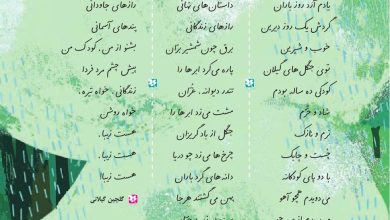 یادم آرد روز باران
گردش یک روز دیرین
خوب و شیرین
توی جنگل های گیلان
کودکی ده ساله بودم
شاد و خرّم
نرم و نازک
چست و چابک
با دو پای کودکانه
می دویدم همچو آهو
داستان های نهانی
رازهای زندگانی
برق چون شمشیر برّان
پاره می کرد ابرها را
تندر دیوانه، غرّان
مشت می زد ابرها را
جنگل از باد گریزان
چرخ ها می زد چو دریا
دانه های گرد باران
پهن می گشتند هر جا
رازهای جاودانی
پندهای آسمانی
بشنو از من، کودک من
پیش چشم مرد فردا
زندگانی، خواه تیره،
خواه روشن
هست زیبا،
هست زیبا،
هست زیبا!
گلچین گیلانی